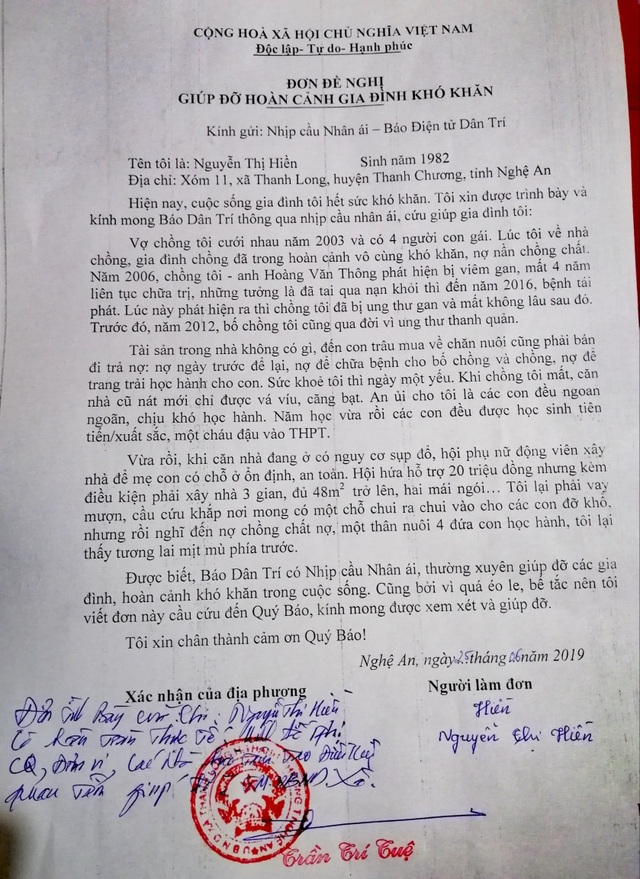 CỘNG HOÀ XÃ HỘI CHỦ NGHĨA VIỆT NAM
Độc lập- Tự do- Hạnh phúc
ĐƠN ĐỀ NGHỊ
GIÚP ĐỠ HOÀN CẢNH GIA ĐÌNH KHÓ KHĂN
Kính gửi: Nhịp cầu Nhân ái – Báo Điện tử Dân Trí
Tên tôi là: Nguyễn Thị Hiền Sinh năm 1982
Địa chỉ: Xóm 11, xã Thanh Long, huyện Thanh Chương, tỉnh Nghệ An
Hiện nay, cuộc sống gia đình tôi hết sức khó khăn. Tôi xin được trình bày và
kính mong Báo Dân Trí thông qua nhịp cầu nhân ái, cứu giúp gia đình tôi:
Vợ chồng tôi cưới nhau năm 2003 và có 4 người con gái. Lúc tôi về nhà
chồng, gia đình chồng đã trong hoàn cảnh vô cùng khó khăn, nợ nần chồng chất.
Năm 2006, chồng tôi - anh Hoàng Văn Thông phát hiện bị viêm gan, mất 4 năm
liên tục chữa trị, những tưởng là đã tai qua nạn khỏi thì đến năm 2016, bệnh tái
phát. Lúc này phát hiện ra thì chồng tôi đã bị ung thư gan và mất không lâu sau đó.
Trước đó, năm 2012, bố chồng tôi cũng qua đời vì ung thư thanh quản.
Tài sản trong nhà không có gì, đến con trâu mua về chăn nuôi cũng phải bán
đi trả nợ: nợ ngày trước để lại, nợ để chữa bệnh cho bố chồng và chồng, nợ để
trang trải học hành cho con. Sức khoẻ tôi thì ngày một yếu. Khi chồng tôi mất, căn
nhà cũ nát mới chỉ được vá víu, căng bạt. An ủi cho tôi là các con đều ngoan
ngoãn, chịu khó học hành. Năm học vừa rồi các con đều được học sinh tiên
tiến/xuất sắc, một cháu đậu vào THPT.
Vừa rồi, khi căn nhà đang ở có nguy cơ sụp đổ, hội phụ nữ động viên xây
nhà để mẹ con có chỗ ở ổn định, an toàn. Hội hứa hỗ trợ 20 triệu đồng nhưng kèm
điều kiện phải xây nhà 3 gian, đủ 48m² trở lên, hai mái ngói... Tôi lại phải vay
mượn, cầu cứu khắp nơi mong có một chỗ chui ra chui vào cho các con đỡ khổ,
nhưng rồi nghĩ đến nợ chồng chất nợ, một thân nuôi 4 đứa con học hành, tôi lại
thấy tương lai mịt mù phía trước.
Được biết, Báo Dân Trí có Nhịp cầu Nhân ái, thường xuyên giúp đỡ các gia
đình, hoàn cảnh khó khăn trong cuộc sống. Cũng bởi vì quá éo le, bế tắc nên tôi
viết đơn này cầu cứu đến Quý Báo, kính mong được xem xét và giúp đỡ.
Tôi xin chân thành cảm ơn Quý Báo!
Nghệ An, ngày 25 tháng 06 năm 2019
Xác nhận của địa phương Người làm đơn
Hiền
Nguyễn Thị Hiền
Đơn trình bày của chị: Nguyễn Thị Hiền
CQ, Đơn vị, các nhà
giúp
Trần Trí Tuệ